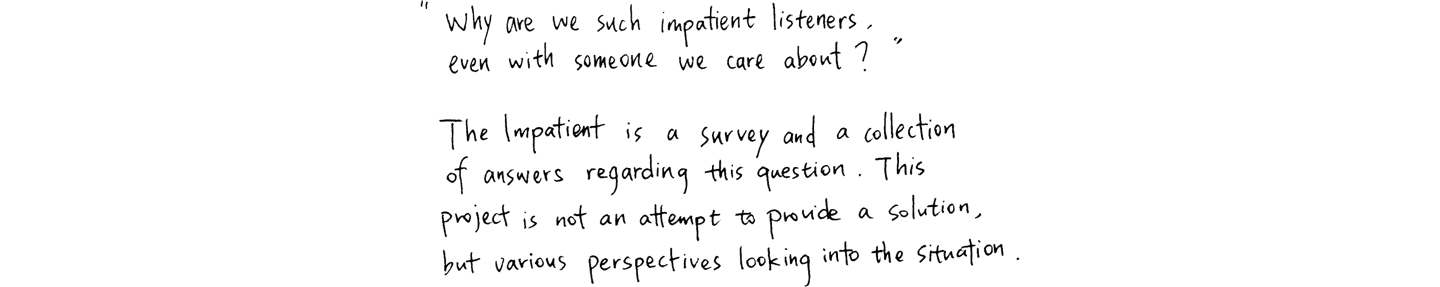 " Why are we such impatient listeners,
even with someone we care about ? "
The Impatient is a survey and a collection
of answers regarding this question. This
project is not an attempt to provide a solution,
but various perspectives looking into the situation.